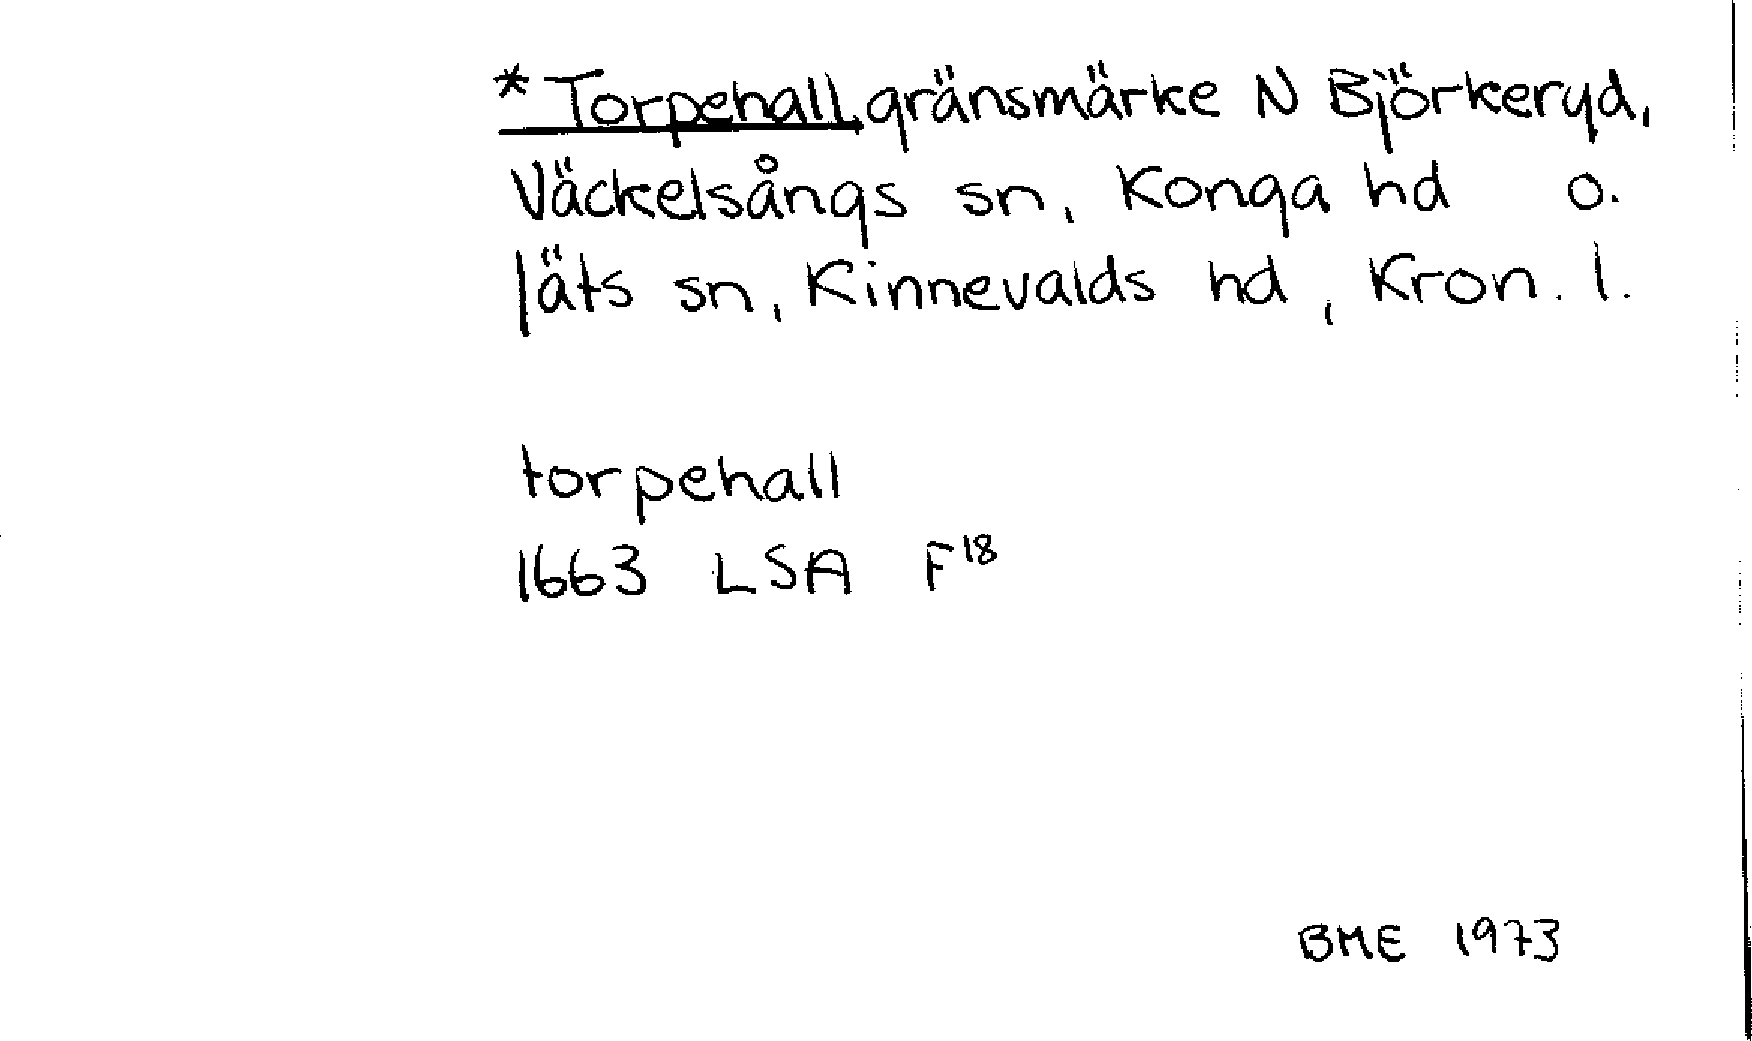 * Torpehall gränsmärke N Björkeryd,
Väckelsångs sn, Konga hd o.
Jäts sn, Kinnevalds hd, Kron. l.
torpehall
1663 LSA F18
BME 1973